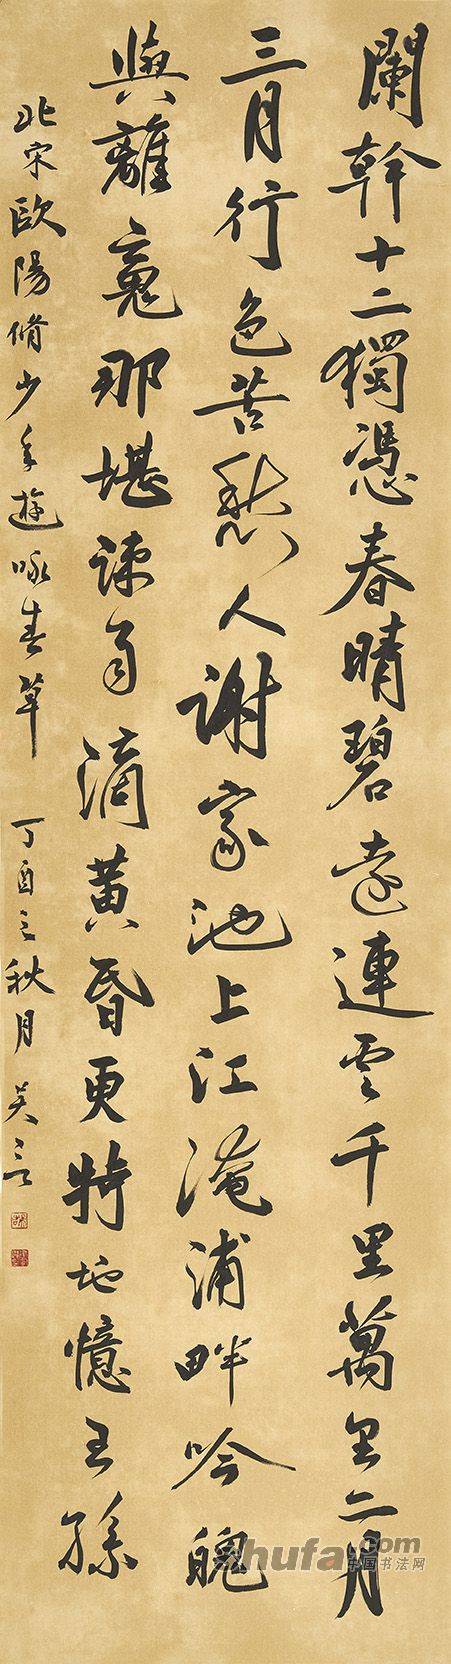 闌幹十二獨憑春晴碧遠連雲千里萬里二月
三月行色苦愁人謝家池上江淹浦畔吟魄
與離魂那堪疎雨滴黃昏更特地憶王孫
北宋歐陽脩少年遊咏春草 丁酉之秋月 吴言
shufa.com
中国书法网